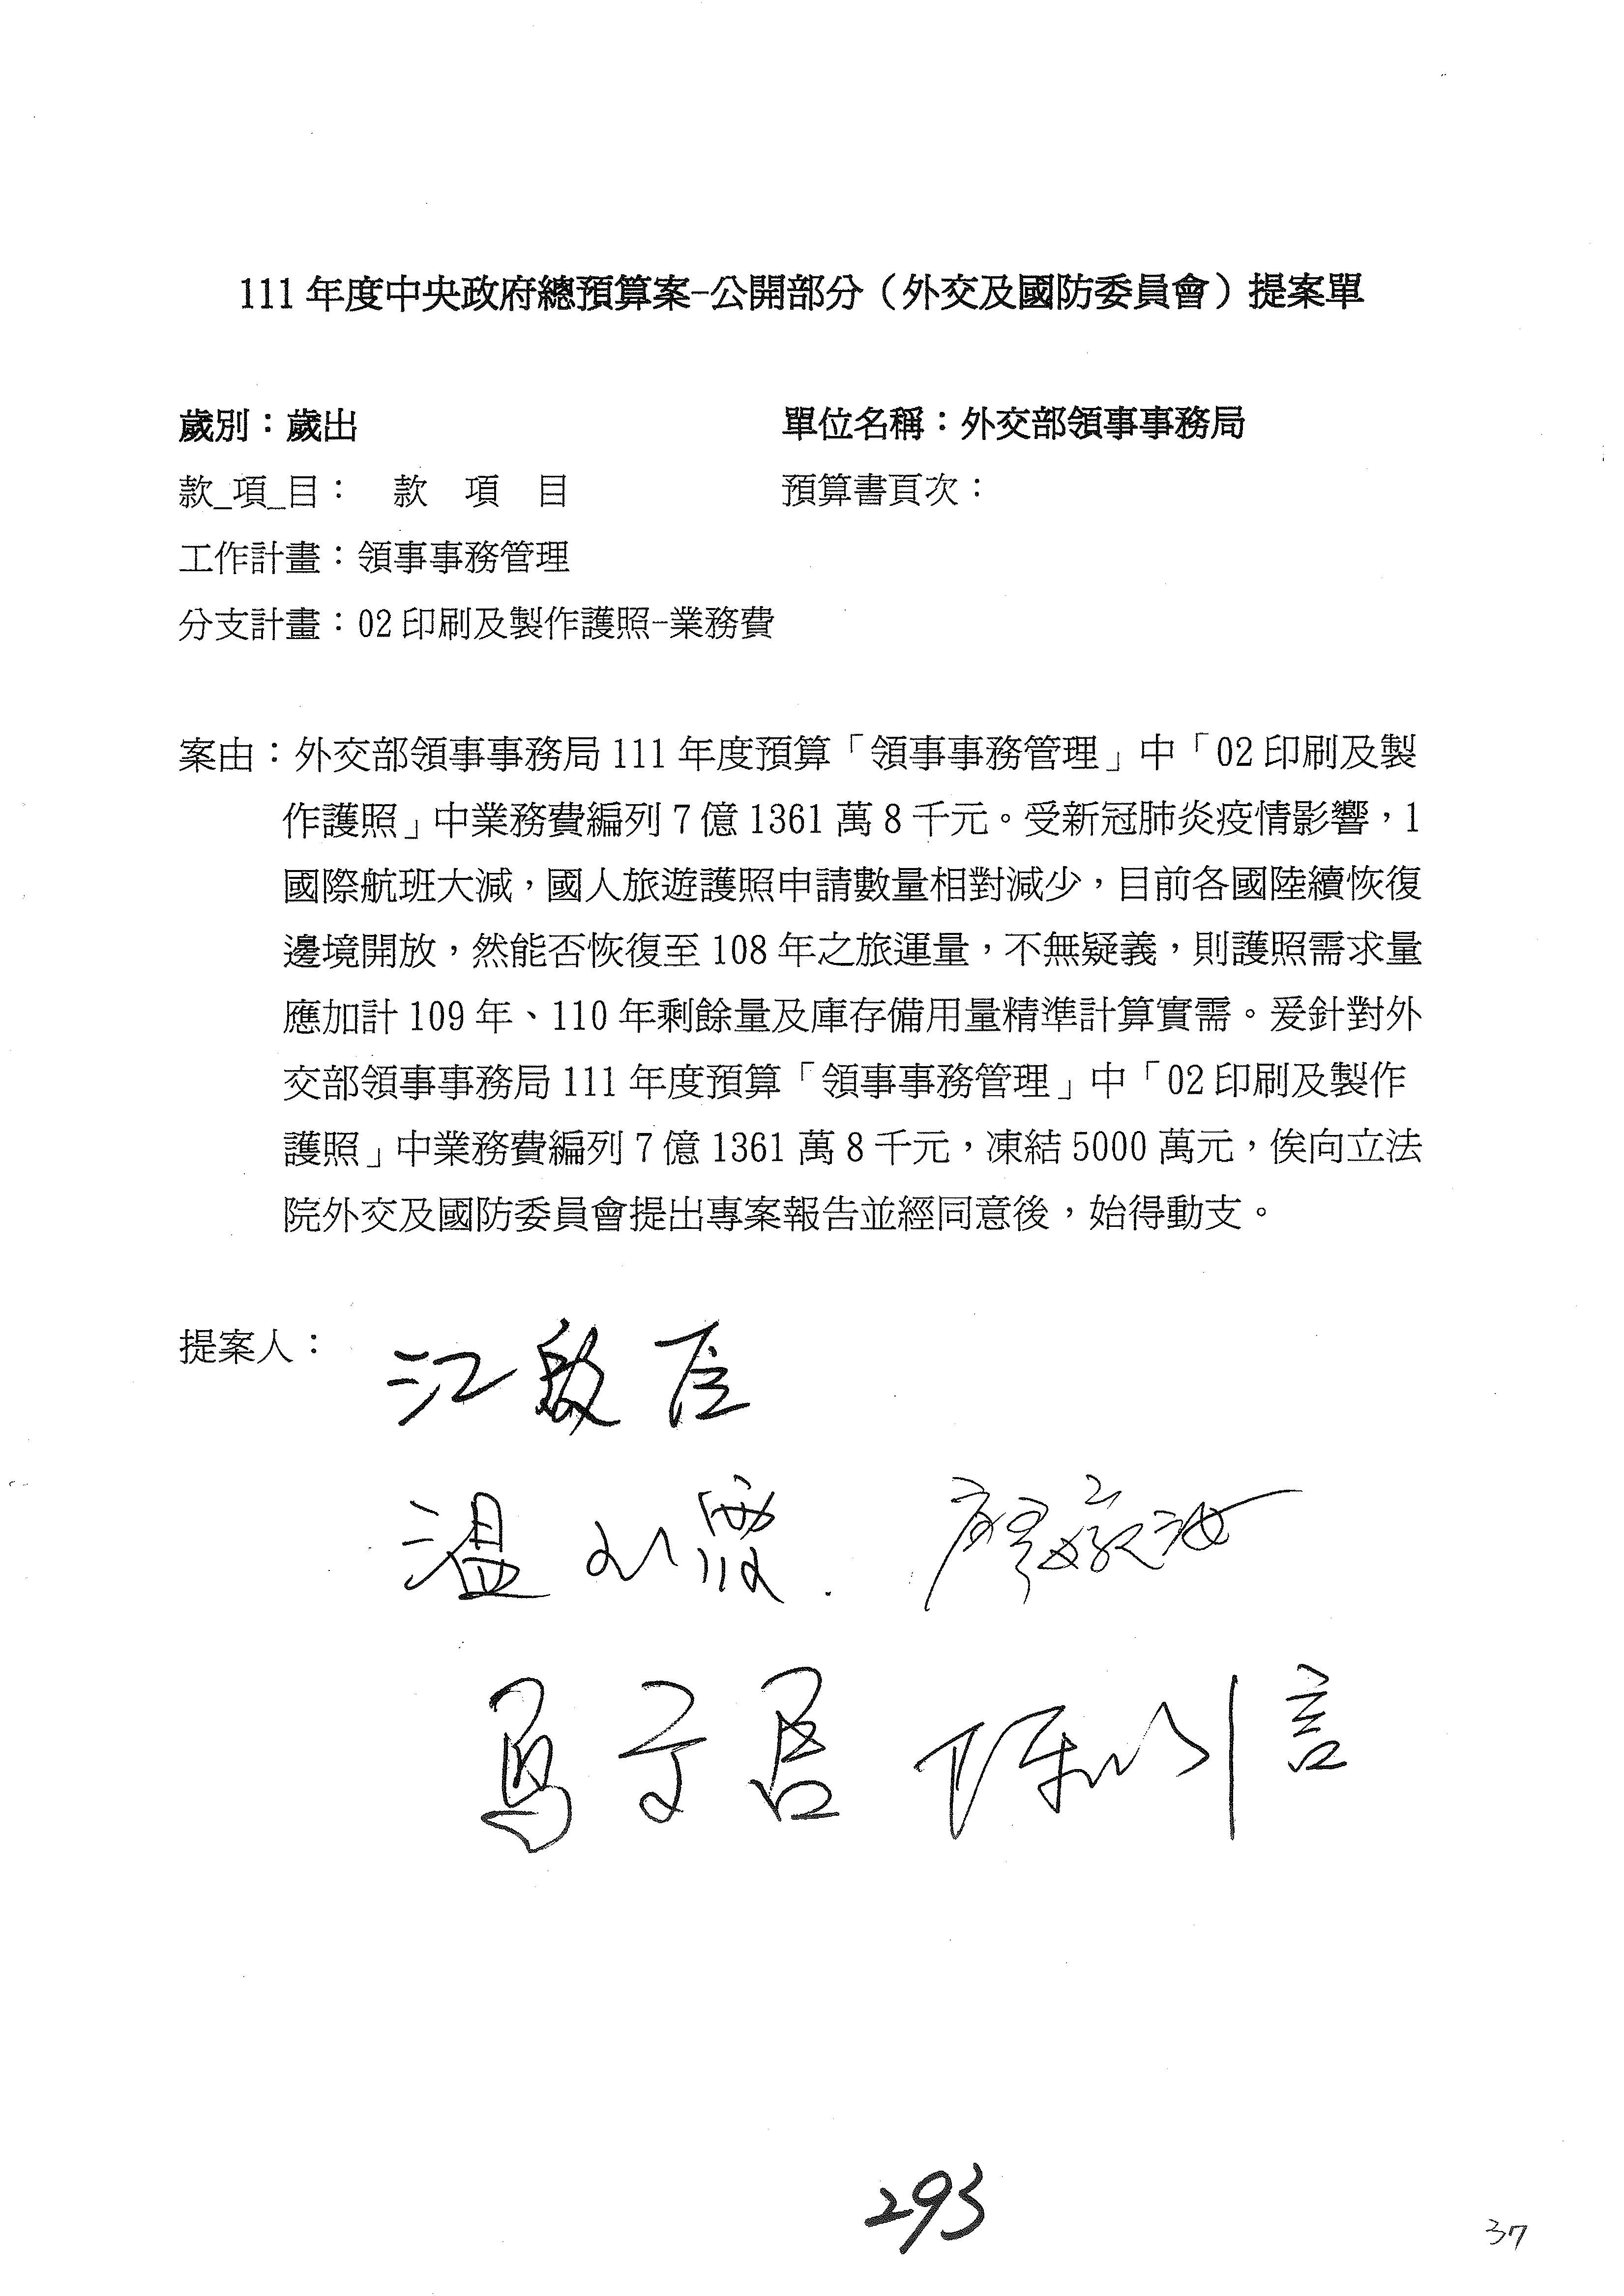 111年度中央政府總預算案-公開部分（外交及國防委員會）提案單
歲別：歲出 單位名稱：外交部領事事務局
款_項_目： 款 項 目 預算書頁次：
工作計畫：領事事務管理
分支計畫：02印刷及製作護照-業務費
案由：外交部領事事務局111年度預算「領事事務管理」中「02印刷及製
作護照」中業務費編列7億1361萬8千元。受新冠肺炎疫情影響，1
國際航班大減，國人旅遊護照申請數量相對減少，目前各國陸續恢復
邊境開放，然能否恢復至108年之旅運量，不無疑義，則護照需求量
應加計109年、110年剩餘量及庫存備用量精準計算實需。爰針對外
交部領事事務局111年度預算「領事事務管理」中「02印刷及製作
護照」中業務費編列7億1361萬8千元，凍結5000萬元，俟向立法
院外交及國防委員會提出專案報告並經同意後，始得動支。
提案人： 江啟臣
溫玉霞 
馬文君 陳以信
293
37